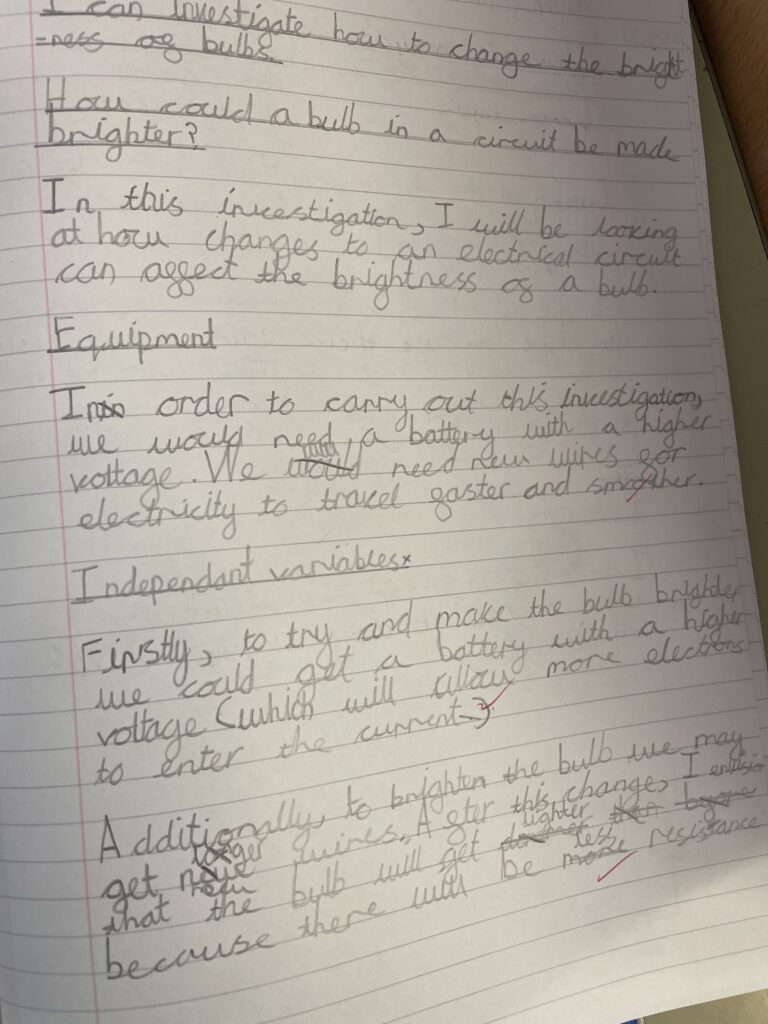 I can investigate how to change the bright
=ness of bulbs.
How could a bulb in a circuit be made
brighter?
In this investigation, I will be looking
at how changes to an electrical circuit
can affect the brightness of a bulb.
Equipment
In order to carry out this investigation,
we would need, a battery with a higher
voltage. We would need new wires for
electricity to travel faster and smoother.
Independant variables
Firstly, to try and make the bulb brighter
we could get a battery with a higher
voltage (which will allow more electrons
to enter the current).
Additionally, to brighten the bulb we may
get new wires. After this change, I
that the bulb will get lighter
because there will be less resistance